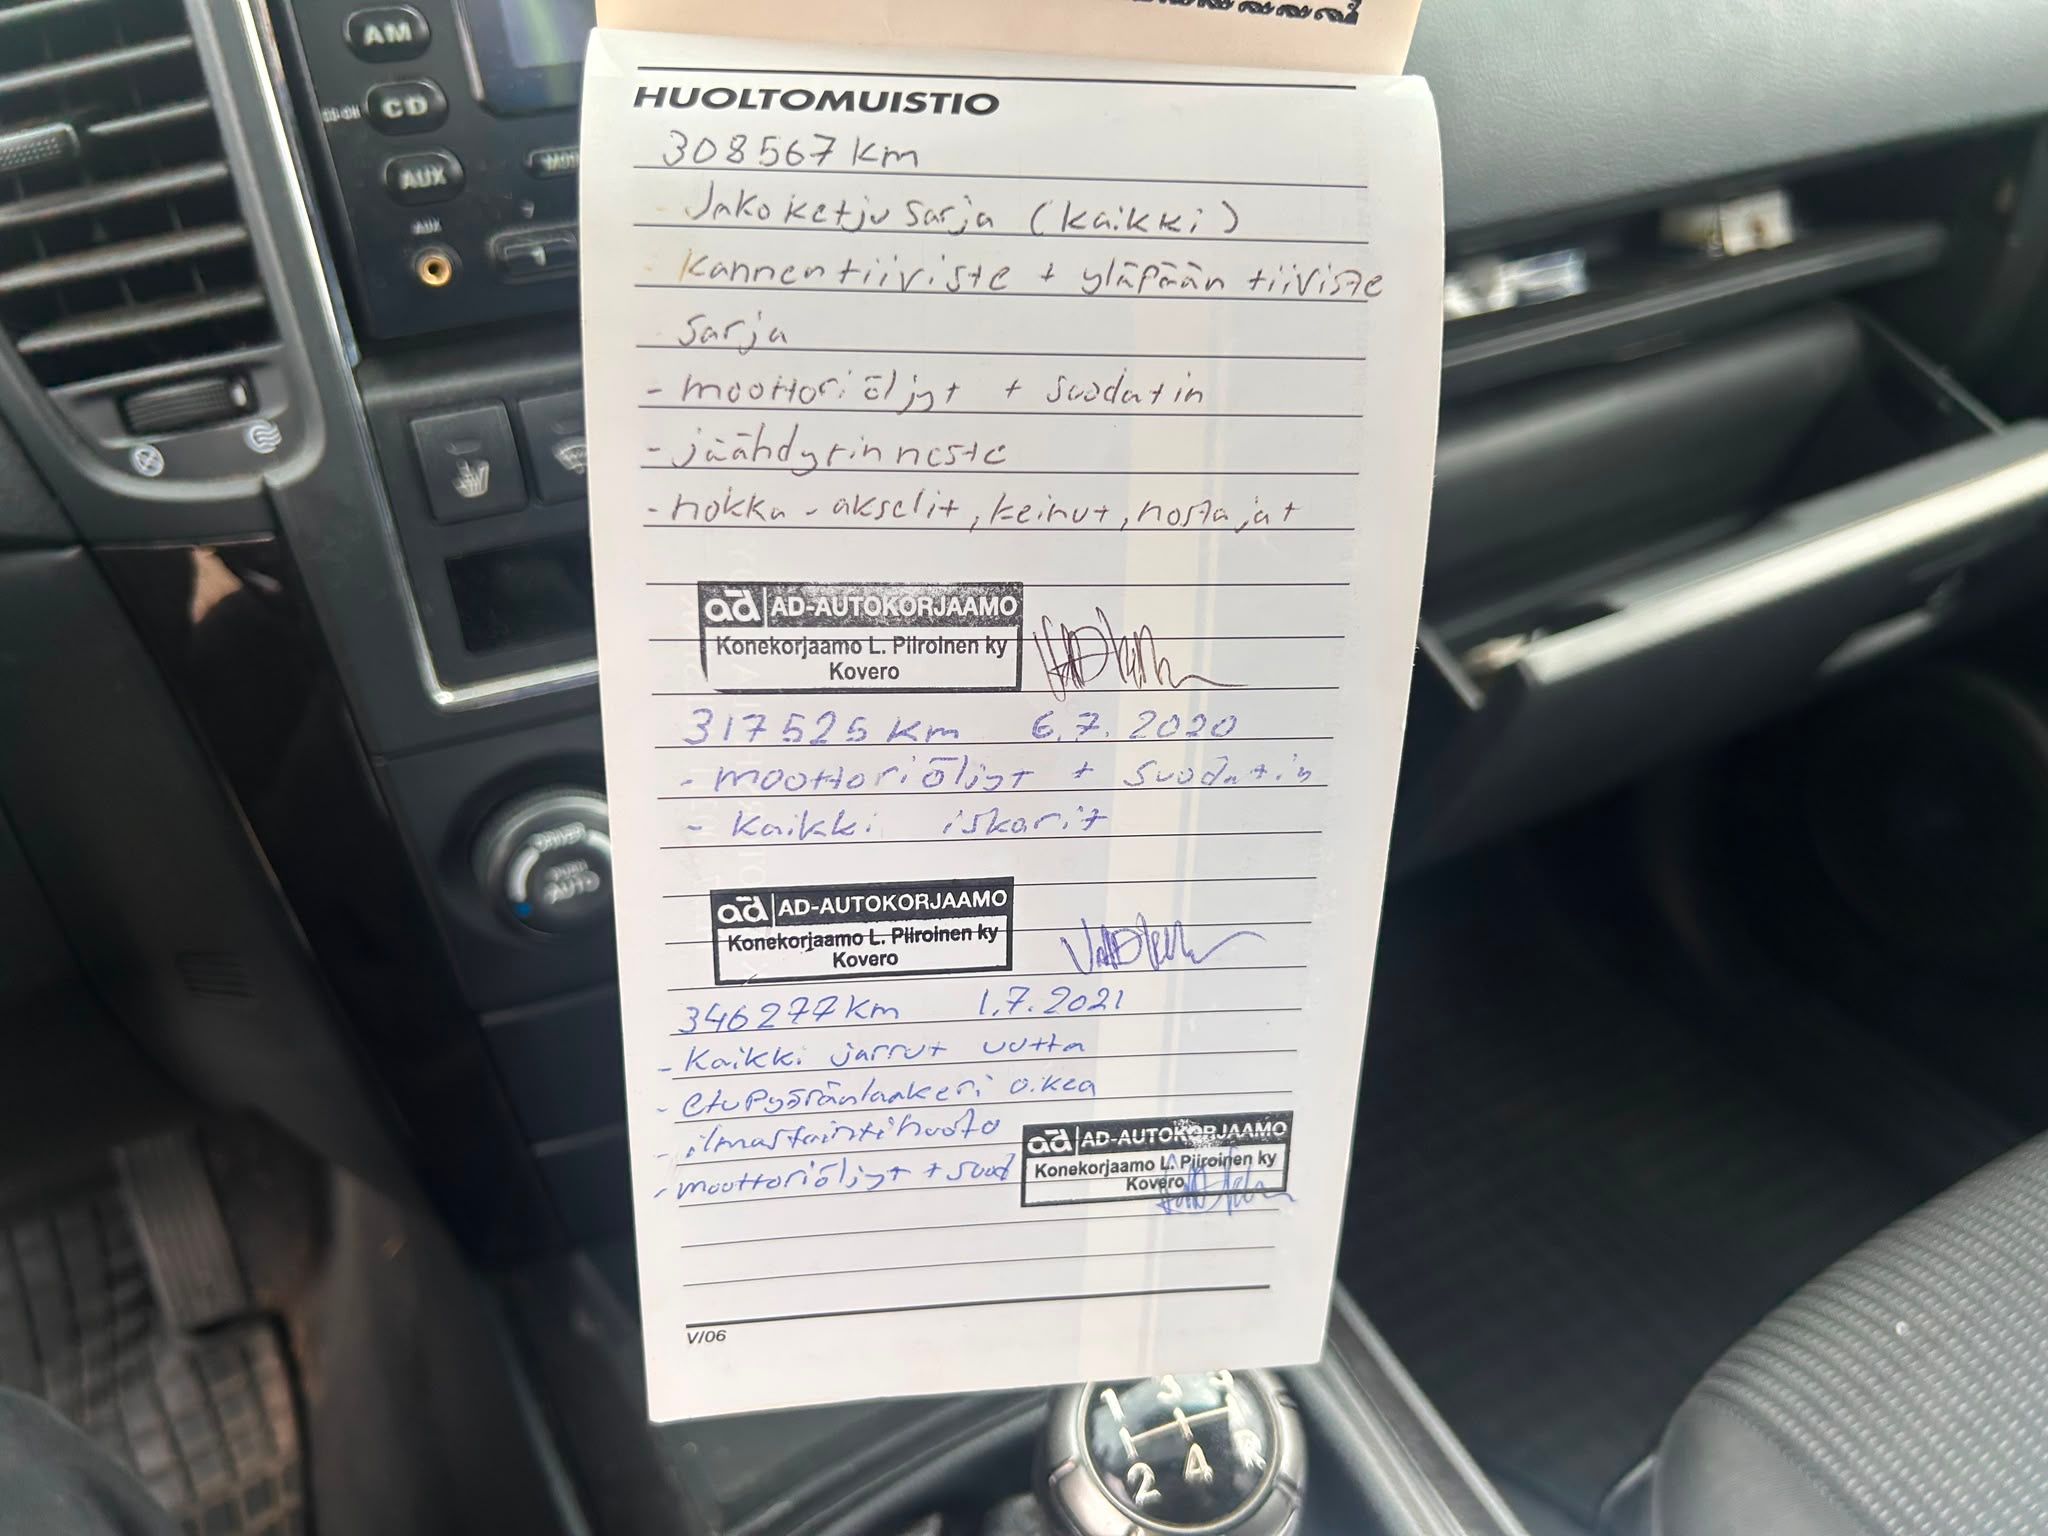 AM
CD
AUX
AUX
HUOLTOMUISTIO
308567 km
- Jakoketjusarja (kaikki)
- Kannentiiviste + yläpään tiiviste
sarja
- moottoriöljyt + suodatin
- jäähdytinneste
- nokka-akselit, keinut, nostajat
ad AD-AUTOKORJAAMO
Konekorjaamo L. Piiroinen ky
Kovero
317525 km 6.7.2020
- moottoriöljyt + suodatin
- kaikki iskarit
ad AD-AUTOKORJAAMO
Konekorjaamo L. Piiroinen ky
Kovero
346277 km 1.7.2021
- Kaikki jarrut uutta
- etupyöränlaakeri oikea
- ilmastointihuolto
- moottoriöljyt + suod
ad AD-AUTOKORJAAMO
Konekorjaamo L. Piiroinen ky
Kovero
V/06
DRIVER
PUSH
AUTO
1 3 5
2 4 R